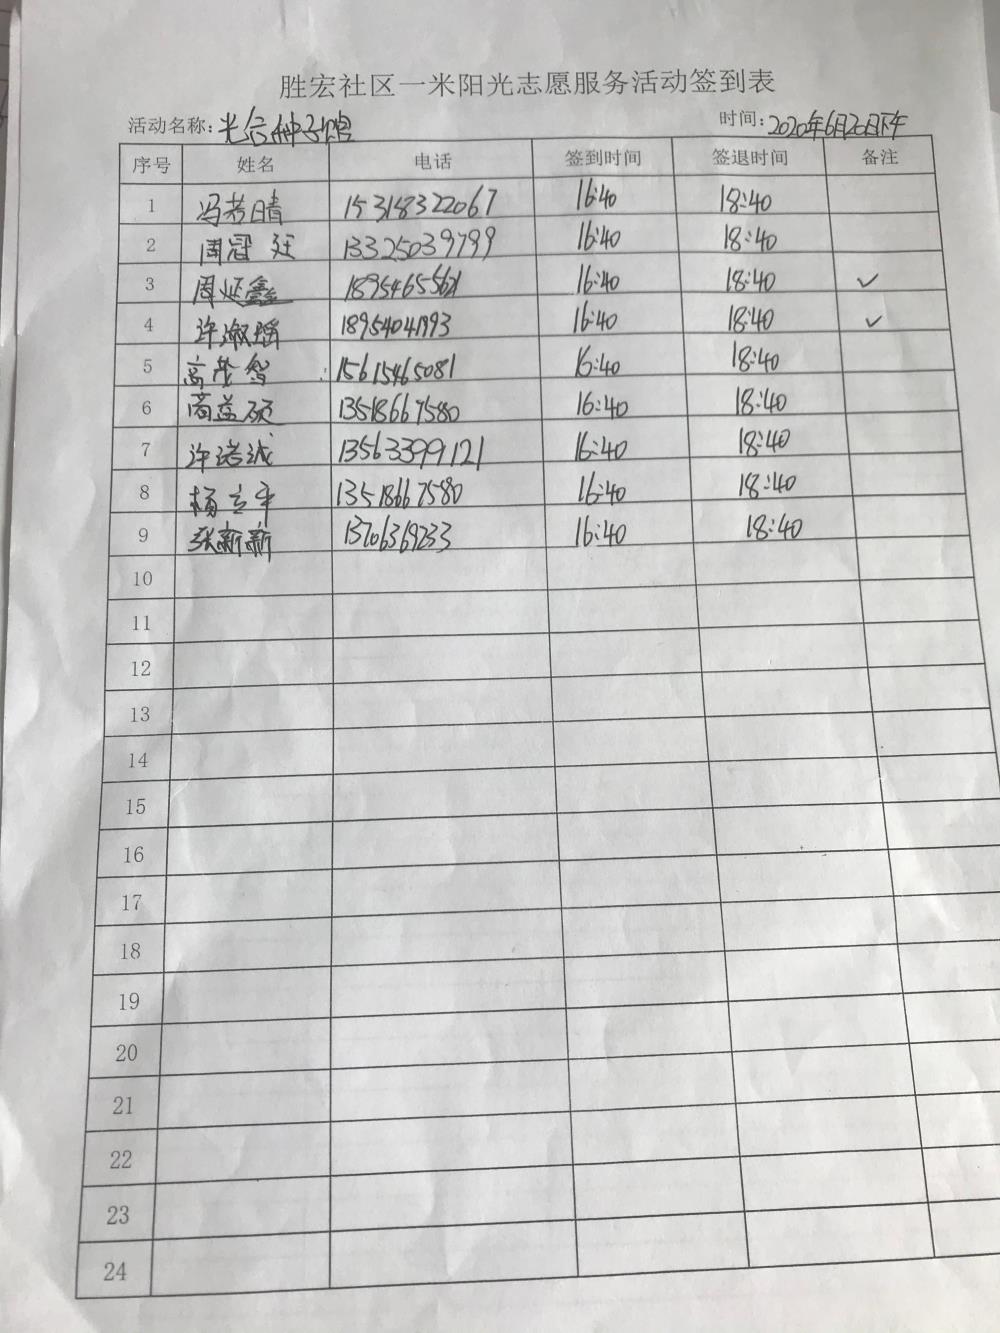 胜宏社区一米阳光志愿服务活动签到表
活动名称: 光合种子馆 时间: 2020年6月20日下午
序号 姓名 电话 签到时间 签退时间 备注
1 冯若晴 15318322067 16:40 18:40
2 周冠廷 13325039799 16:40 18:40
3 周延鑫 18954655621 16:40 18:40 ✓
4 许淑瑶 18954041993 16:40 18:40 ✓
5 高茂智 15615465081 16:40 18:40
6 商益硕 13518667580 16:40 18:40
7 许诺诚 13563399121 16:40 18:40
8 杨立平 13518667580 16:40 18:40
9 张新新 13706369233 16:40 18:40
10
11
12
13
14
15
16
17
18
19
20
21
22
23
24